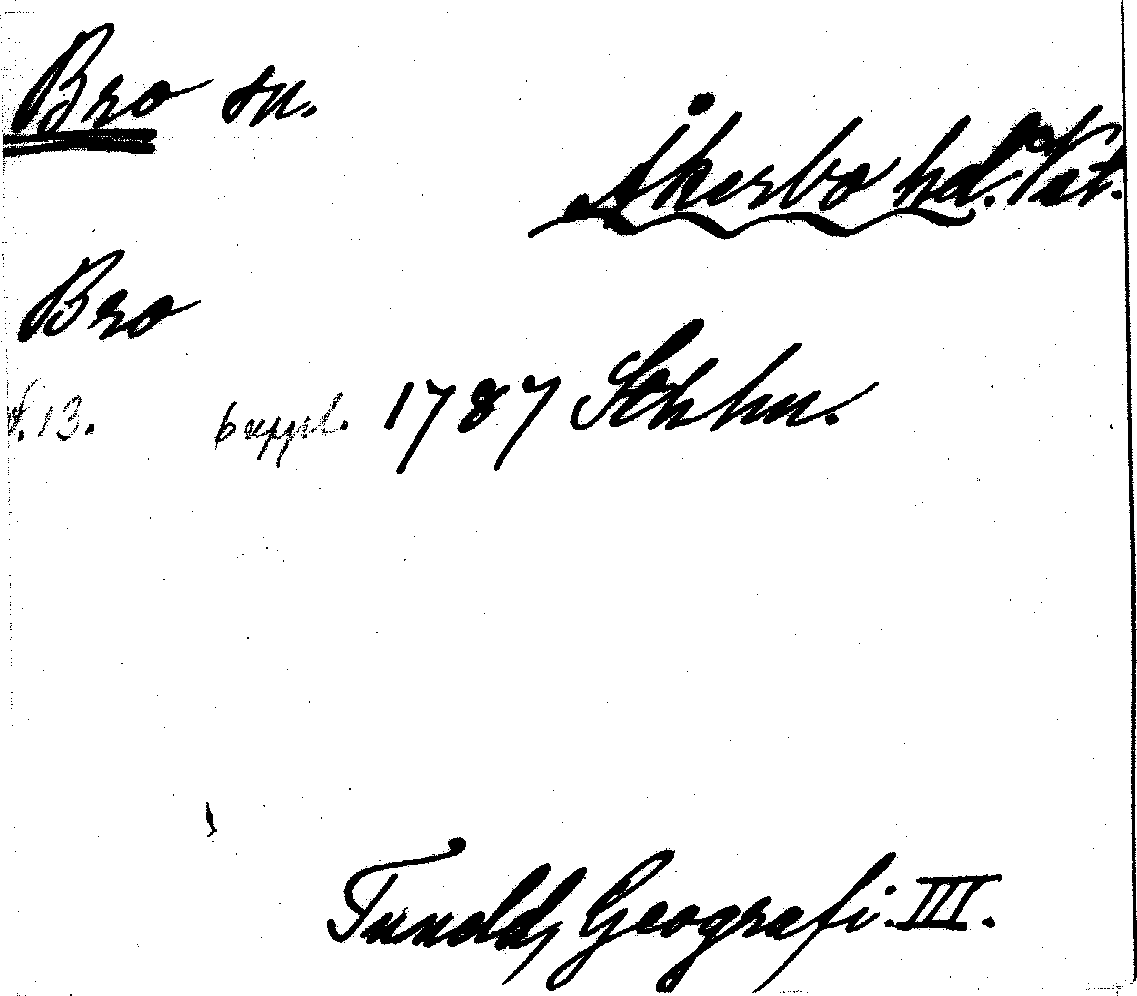 Bro sn.
Åkerbo hd. Vstm.
Bro
s. 13. suppl. 1787
Tunelds Geografi. III.